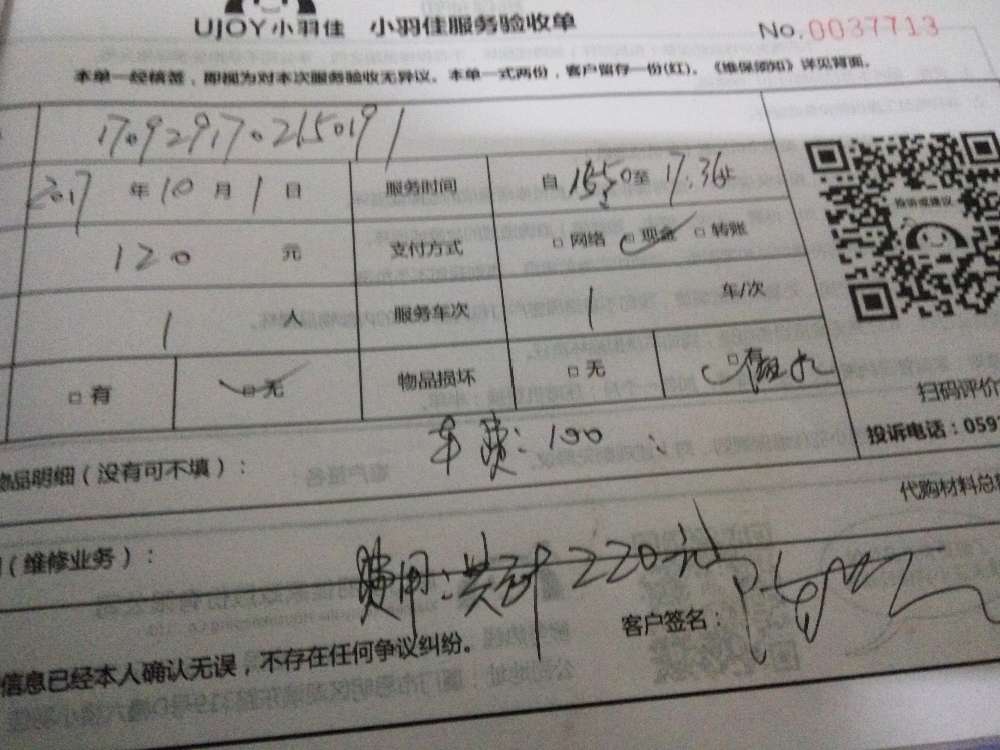 UJOY小羽佳 小羽佳服务验收单 No. 0037713
本单一经核签，即视为对本次服务验收无异议。本单一式两份，客户留存一份(红)。《维保须知》详见背面。
170929170215019
2017 年 10 月 1 日 服务时间 自 至 17:36止
120 元 支付方式 □网络 □现金 □转账
1 人 服务车次 1 车/次
□有 □无 物品损坏 □无 □有
投诉或建议
扫码评价
车费：100
物品明细（没有可不填）：
投诉电话：059
代购材料总
（维修业务）：
费用：共计220元
客户签名：
信息已经本人确认无误，不存在任何争议纠纷。